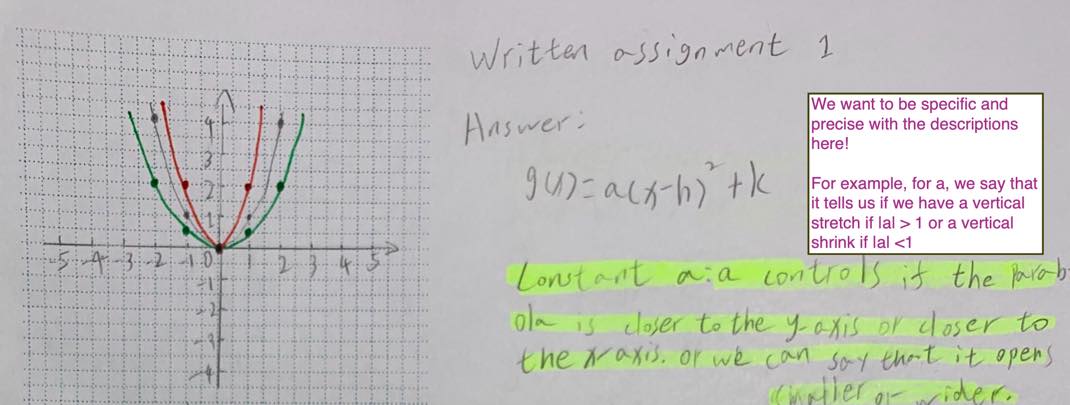 Written assignment 1
Answer:
g(x)=a(x-h)²+k
We want to be specific and
precise with the descriptions
here!
For example, for a, we say that
it tells us if we have a vertical
stretch if |a| > 1 or a vertical
shrink if |a| <1
Constant a:a controls if the parab-
ola is closer to the y-axis or closer to
the x-axis. or we can say that it opens
smaller or wider.
4
3
2
1
-5 -4 -3 -2 -1 0 1 2 3 4 5
-1
-2
-3
-4